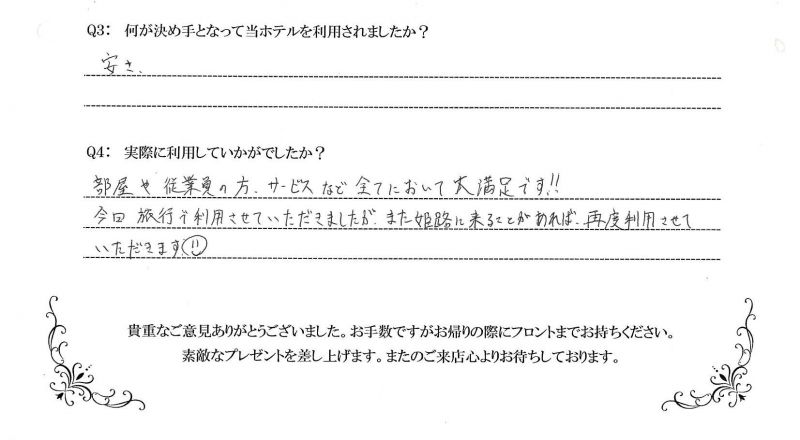 Q3: 何が決め手となって当ホテルを利用されましたか?
安さ、
Q4: 実際に利用していかがでしたか?
部屋や従業員の方、サービスなど全てにおいて大満足です!!
今回旅行で利用させていただきましたが、また姫路に来ることがあれば、再度利用させて
いただきます
貴重なご意見ありがとうございました。お手数ですがお帰りの際にフロントまでお持ちください。
素敵なプレゼントを差し上げます。またのご来店心よりお待ちしております。